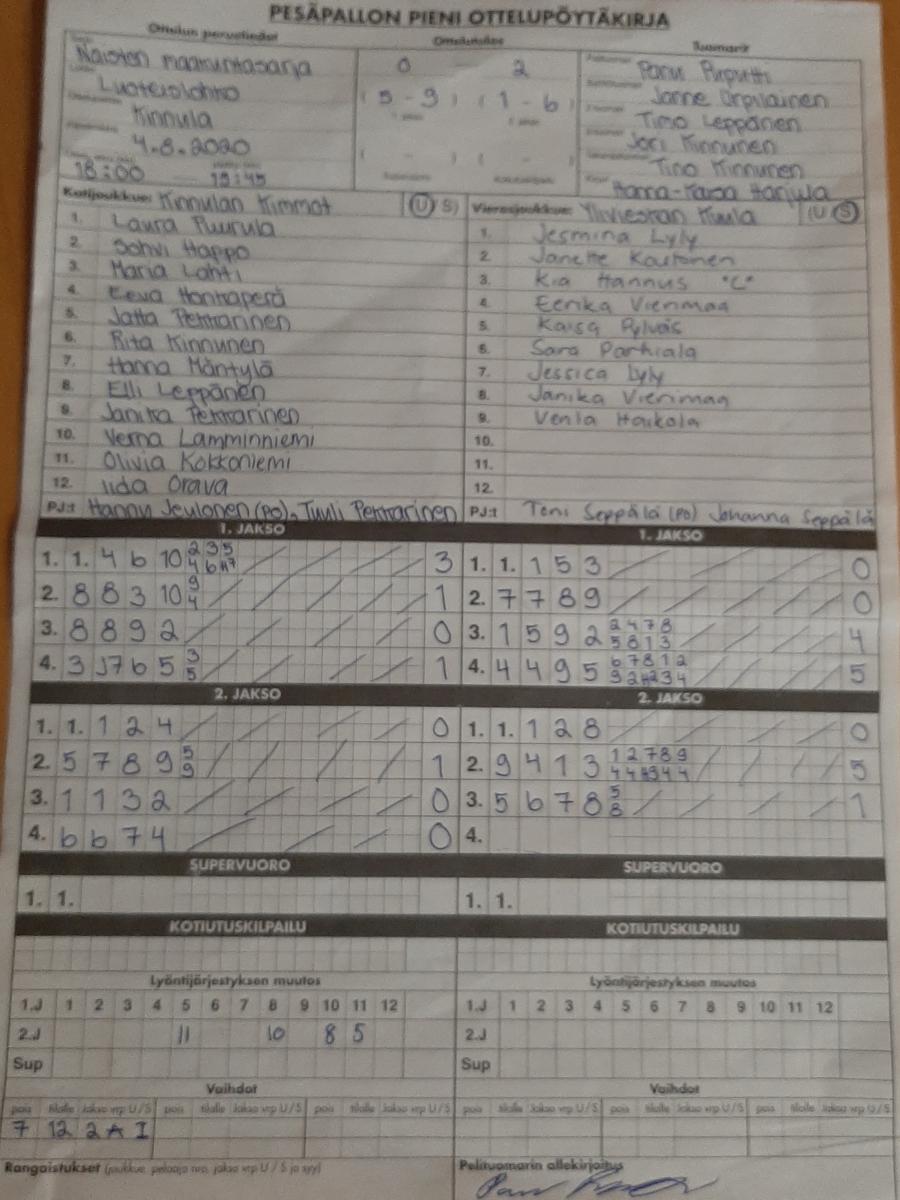 PESÄPALLON PIENI OTTELUPÖYTÄKIRJA
Ottelun perustiedot
Naisten maakuntasarja
Kinnula
4.8.2020
18:00 19:45
0 2
( 5 - 9 ) ( 1 - 6 )
( - ) ( - )
Tuomarit
Janne Orpilainen
Timo Leppänen
Jori Kinnunen
Tino Kinnunen
Kotijoukkue: Kinnulan Kimmat (U S)
1. Laura Puurula
2. Sohvi Happo
3. Maria Lahti
4. Eeva Honkaperä
5. Jatta Pekkarinen
6. Rita Kinnunen
7. Hanna Mäntylä
8. Elli Leppänen
9. Janika Pekkarinen
10. Verna Lamminniemi
11. Olivia Kokkoniemi
12. Iida Orava
PJ:t Hannu Jeulonen (PO), Tuuli Pekkarinen
Vierasjoukkue: Ylivieskan Kuula (U S)
1. Jesmina Lyly
2. Janette Kautonen
3. Kia Hannus "C"
4. Eerika Vierimaa
5. Kaisa Pylväs
6. Sara Parhiala
7. Jessica Lyly
8. Janika Vierimaa
9. Venla Haikola
10.
11.
12.
PJ:t Toni Seppälä (PO) Johanna Seppälä
1. JAKSO
1. 1. 4 6 10 2 3 5 3
4 6
2. 8 8 3 10 9 1
4
3. 8 8 9 2 0
4. 3 J7 6 5 3 1
5
1. JAKSO
1. 1. 1 5 3 0
2. 7 7 8 9 0
3. 1 5 9 2 2 4 7 8 4
5 8 1 3
4. 4 4 9 5 6 7 8 1 2 5
9 2 3 4
2. JAKSO
1. 1. 1 2 4 0
2. 5 7 8 9 5 1
9
3. 1 1 3 2 0
4. 6 6 7 4 0
2. JAKSO
1. 1. 1 2 8 0
2. 9 4 1 3 1 2 7 8 9 5
4 4 4 4
3. 5 6 7 8 5 1
8
4.
SUPERVUORO
1. 1.
SUPERVUORO
1. 1.
KOTIUTUSKILPAILU
KOTIUTUSKILPAILU
Lyöntijärjestyksen muutos
1.J 1 2 3 4 5 6 7 8 9 10 11 12
2.J 11 10 8 5
Sup
Lyöntijärjestyksen muutos
1.J 1 2 3 4 5 6 7 8 9 10 11 12
2.J
Sup
Vaihdot
pois tilalle Jakso vrp U/S pois tilalle Jakso vrp U/S pois tilalle Jakso vrp U/S
7 12 2 A I
Vaihdot
pois tilalle Jakso vrp U/S pois tilalle Jakso vrp U/S pois tilalle Jakso vrp U/S
Rangaistukset (joukkue, pelaaja nro, jakso vrp U / S ja syy)
Pelituomarin allekirjoitus